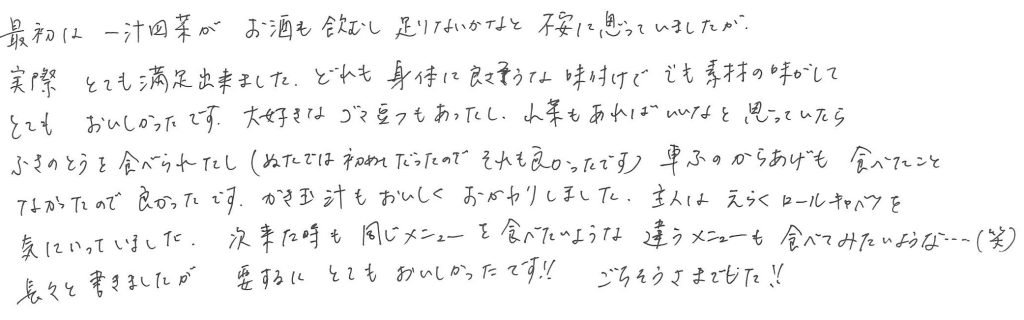 最初は 一汁四菜が お酒も飲むし 足りないかなと 不安に思っていましたが.
実際 とても満足出来ました. どれも 身体に良さそうな 味付けで でも素材の味がして
とても おいしかったです. 大好きな ゴマ豆フもあったし. 山菜もあればいいなと 思っていたら
ふきのとうを食べられたし (ぬたでは初めてだったので それも良かったです) 車ふのからあげも 食べたこと
なかったので 良かったです. かき玉汁もおいしく おかわりしました. 主人は えらくロールキャベツを
気にいっていました. 次来た時も 同じメニューを食べたいような 違うメニューも 食べてみたいような…(笑)
長々と書きましたが 要するに とても おいしかったです!! ごちそうさまでした!!